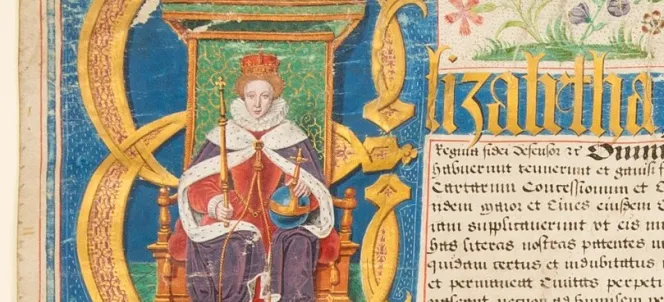 Elizabetha
Regina fidei defensor &c Omni
habuerint tenuerint et gavisi f
Cartarum Concessionum et C
iidem maior et Cives eiusdem C
iam supplicaverint ut eis nu
has literas nostras patentes
quidam certus et indubitatus
et permaneat Civitas perpet